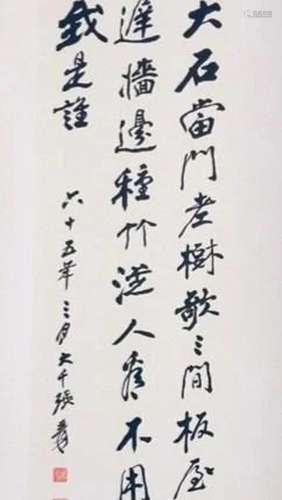 大石當門老樹欹三間板屋
遲牆邊種竹從人看不用
我是誰
六十五年三月大千張爰